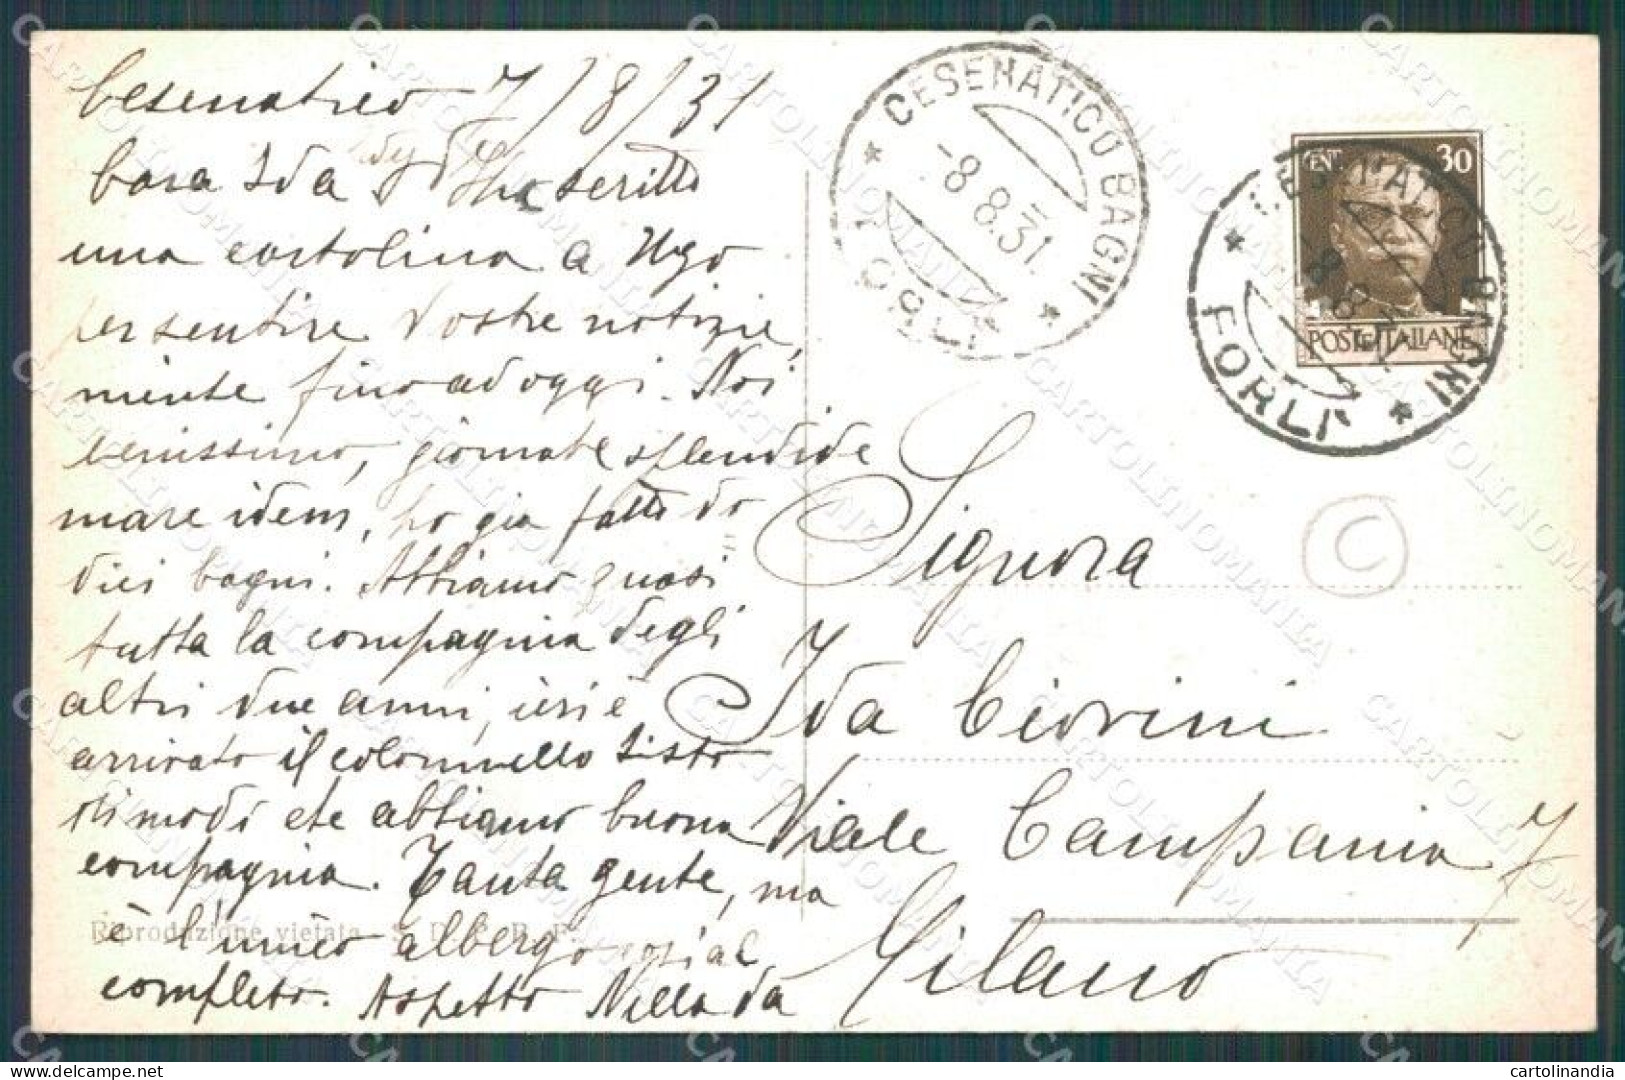 Cesenatico 7/8/31
Cara Ida ho scritto
una cartolina a Ugo
per sentire Vostre notizie,
niente fino ad oggi. Noi
benissimo, giornate splendide
mare idem, ho già fatto do
dici bagni. Abbiamo quasi
tutta la compagnia degli
altri due anni, ieri è
arrivato il colonnello Sisto
abbiamo buona
compagnia. Tanta gente, ma
è l'unico albergo
completo. Aspetto Nilla da
Reproduzione vietata
CESENATICO BAGNI
-8.8.31
* FORLÌ *
CENT. 30
POSTE ITALIANE
CESENATICO BAGNI
* FORLÌ *
C
Signora
Ida Ciorini
Viale Campania 7
Milano
cartolinandia